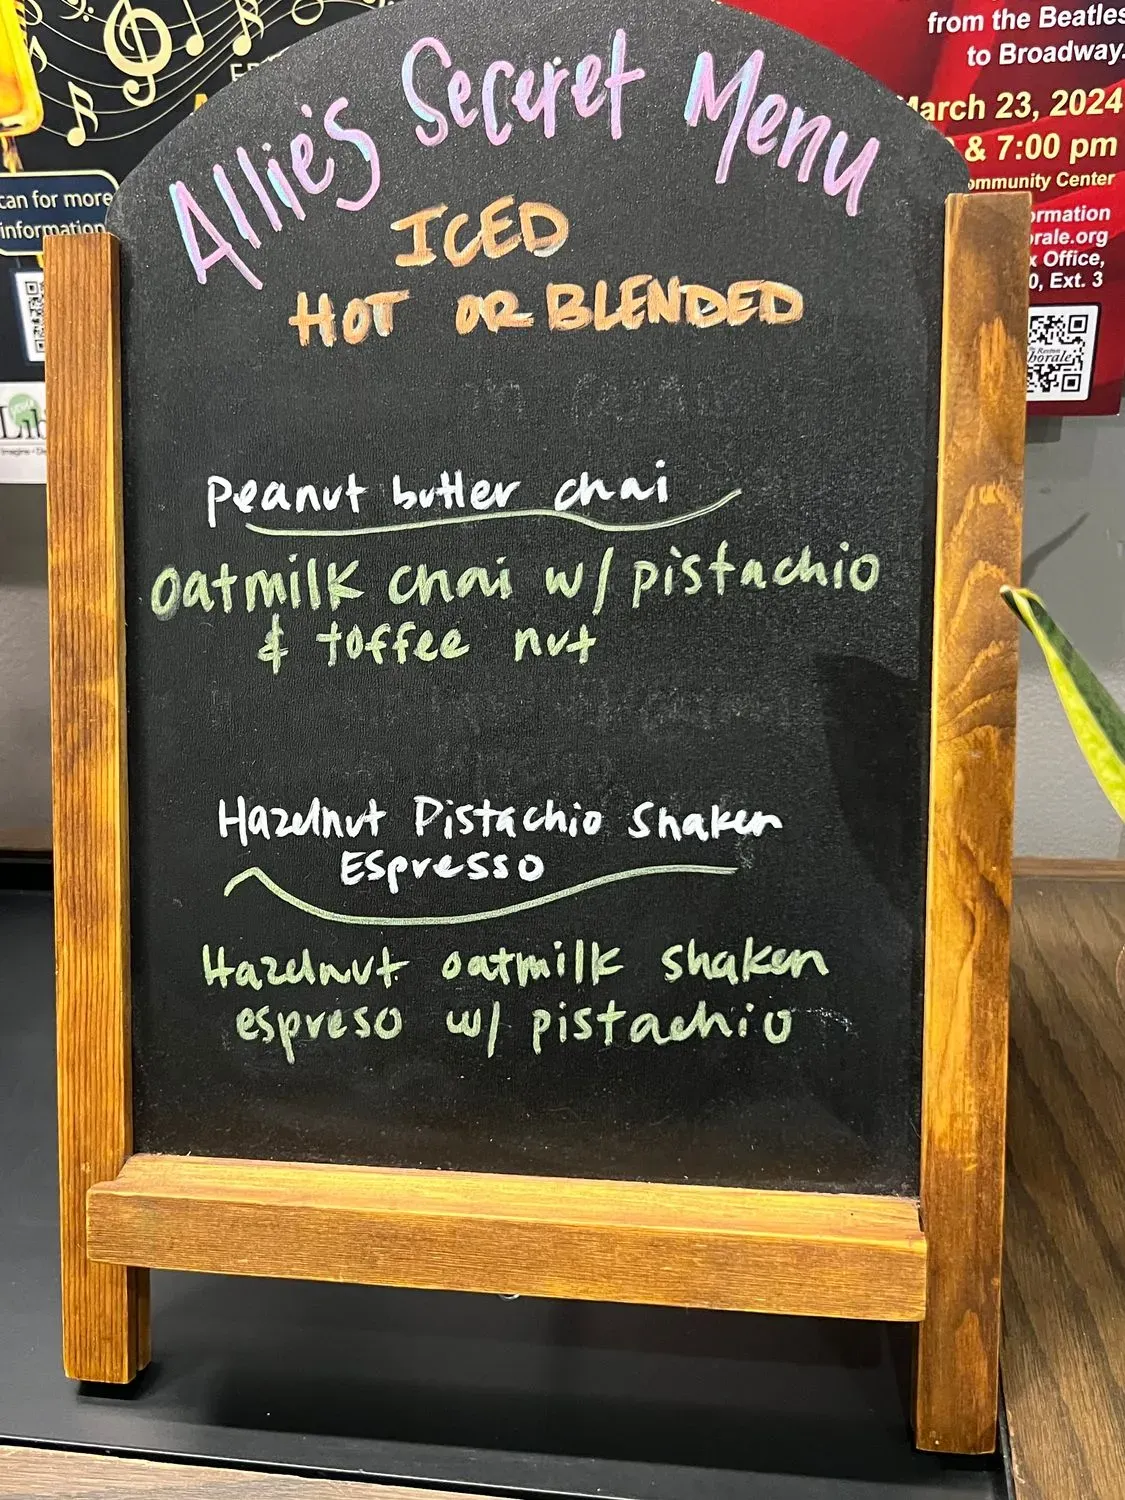 Allie's Seceret Menu
ICED
HOT OR BLENDED
Peanut butter chai
Oatmilk chai w/ pistachio
& toffee nut
Hazelnut Pistachio Shaken
Espresso
Hazelnut oatmilk shaken
espreso w/ pistachio
can for more
information
from the Beatles
to Broadway.
March 23, 2024
& 7:00 pm
ommunity Center
ormation
orale.org
x Office,
0, Ext. 3